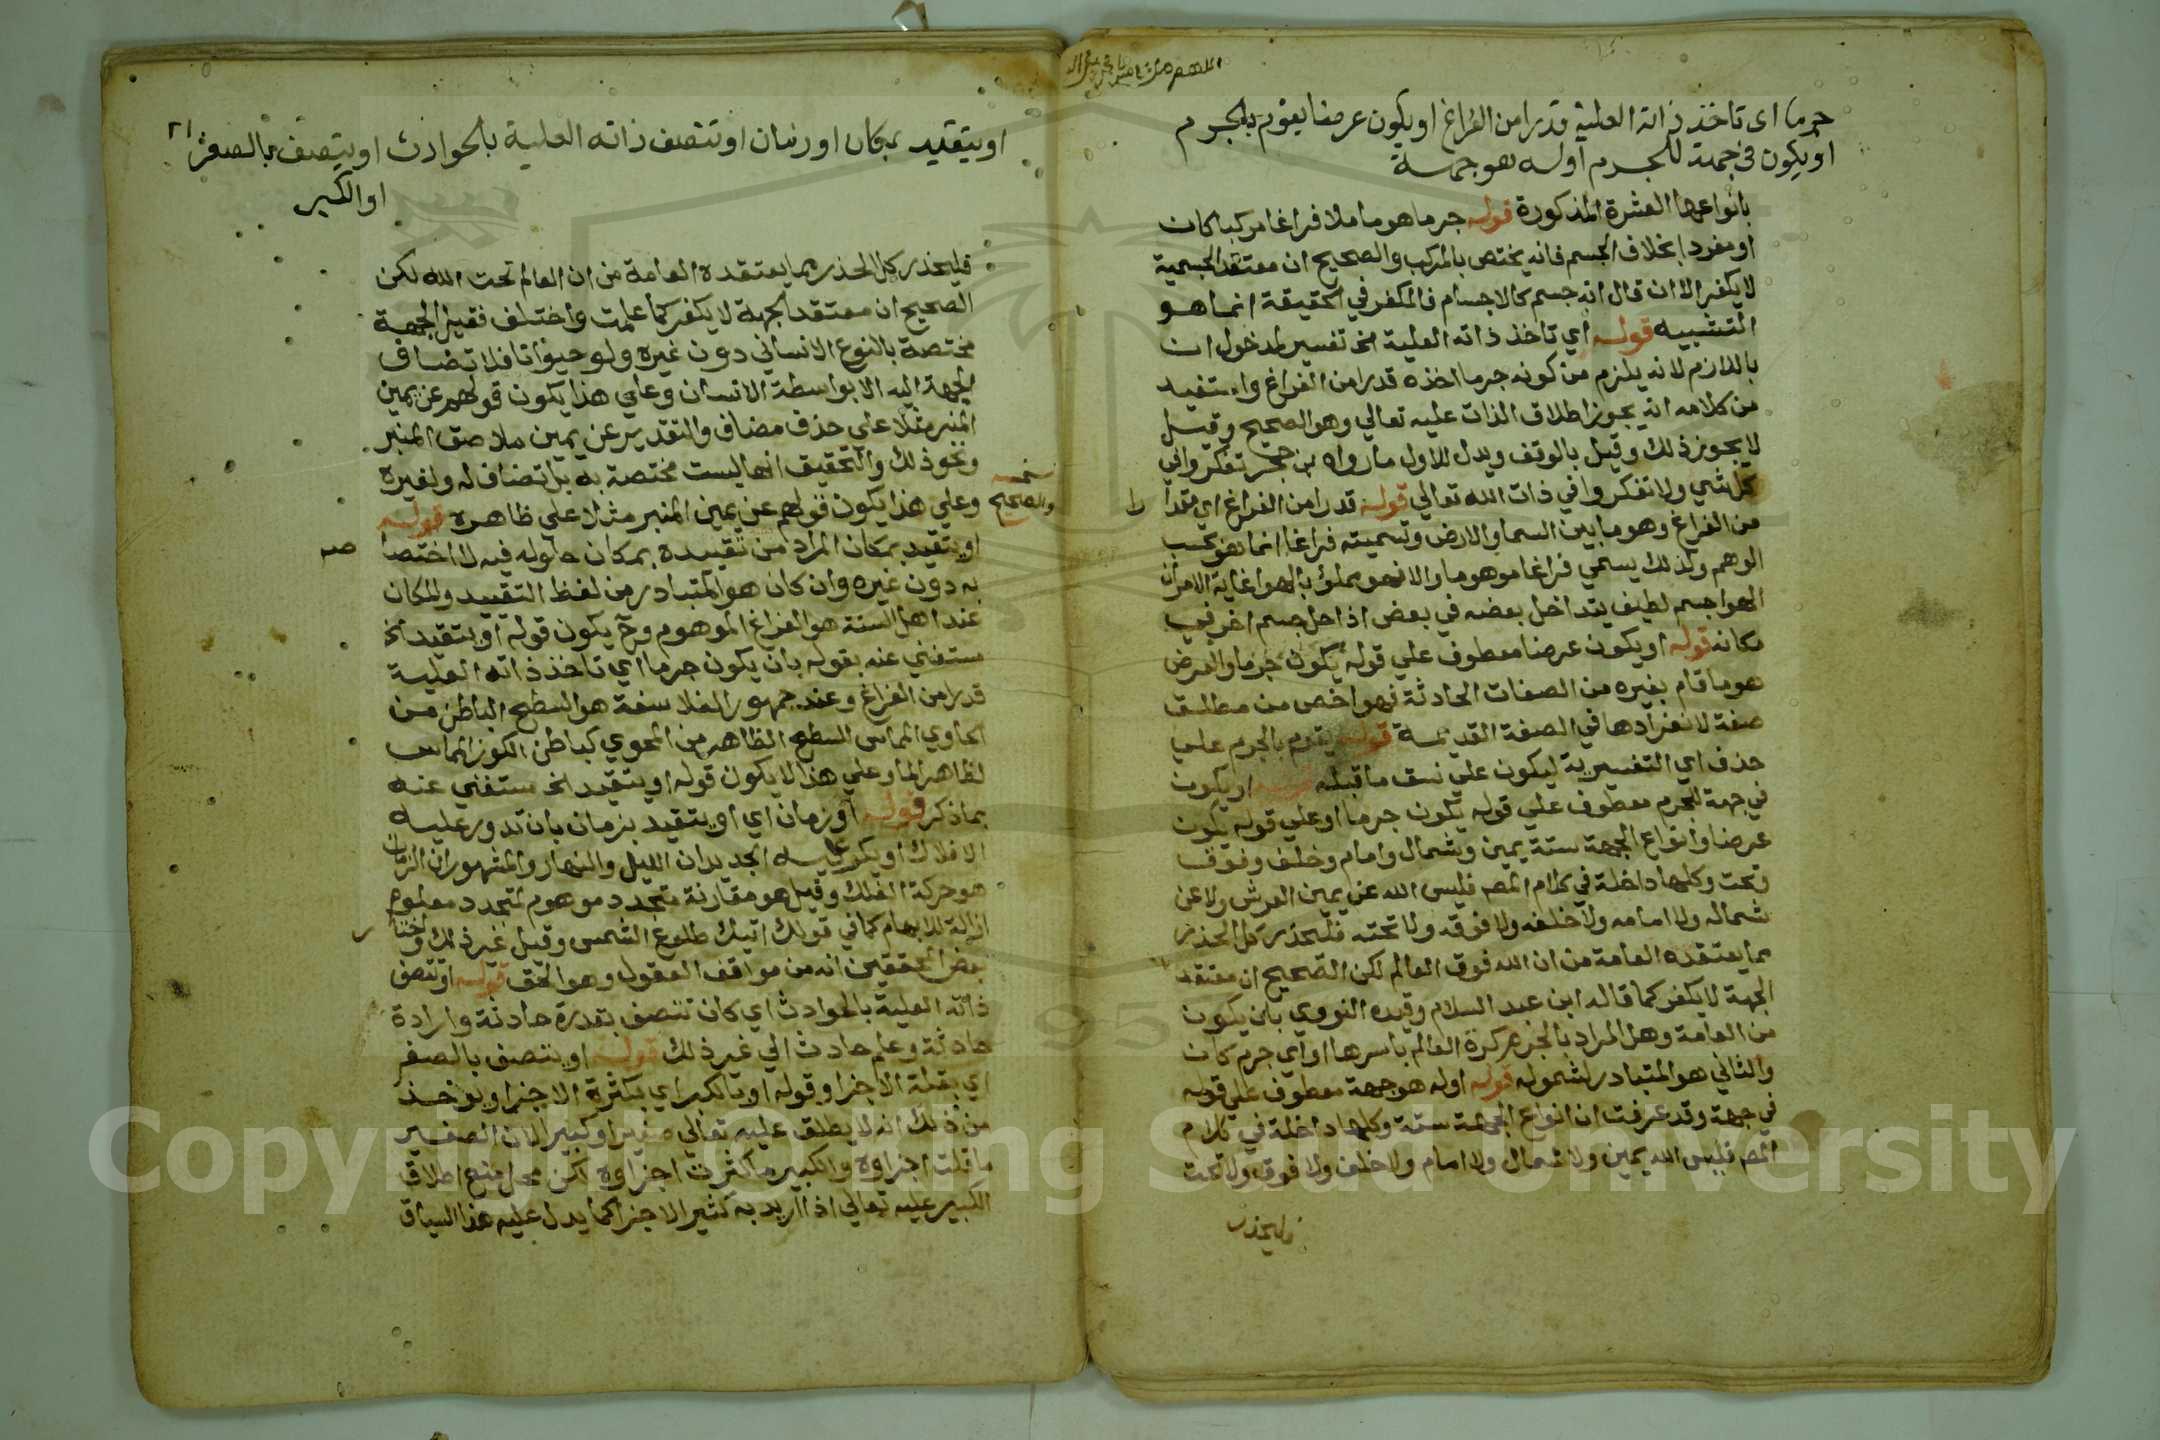 جرما اى تاخذ ذاته العلية قدرا من الفراغ او يكون عرضا يقوم بالجرم
او يكون فى جهة للجرم او له هو جهة
بانواعها العشرة المذكورة قوله جرما هو ما ملا فراغا مركبا كان
او مفردا بخلاف الجسم فانه يختص بالمركب والصحيح ان معتقد الجسمية
لا يكفر الا ان قال انه جسم كالاجسام فالمكفر في الحقيقة انما هو
التشبيه قوله اي تاخذ ذاته العلية الخ تفسير لمدخول ان
باللازم لانه يلزم من كونه جرما اخذه قدرا من الفراغ واستفيد
من كلامه انه يجوز اطلاق الذات عليه تعالي وهو الصحيح وقيل
لا يجوز ذلك وقيل بالوقف ويدل للاول ما رواه بن حجر تفكروا في
كل شي ولا تفكروا في ذات الله تعالي قوله قدرا من الفراغ اي مقدا
من الفراغ وهو ما بين السما والارض وتسميته فراغا انما هو بحسب
الوهم ولذلك يسمي فراغا موهوما والا فهو مملؤ بالهوا غاية الامر ان
الهوا جسم لطيف يتداخل بعضه في بعض اذا حل جسم اخر في
مكانه قوله او يكون عرضا معطوف علي قوله يكون جرما والعرض
هو ما قام بغيره من الصفات الحادثة فهو اخص من مطلق
صفة لانفرادها في الصفة القديمة قوله يقوم بالجرم علي
حذف اي التفسيرية ليكون علي نسق ما قبله قوله او يكون
في جهة للجرم معطوف علي قوله يكون جرما او علي قوله يكون
عرضا وانواع الجهة ستة يمين وشمال وامام وخلف وفوق
وتحت وكلها داخلة في كلام المص فليس الله عن يمين العرش ولا عن
شماله ولا امامه ولا خلفه ولا فوقه ولا تحته فليحذر كل الحذر
مما يعتقده العامة من ان الله فوق العالم لكن الصحيح ان معتقد
الجهة لا يكفر كما قاله ابن عبد السلام وقيده النووي بان يكون
من العامة وهل المراد بالجرم كرة العالم باسرها او اي جرم كان
والثاني هو المتبادر لشموله قوله او له هو جهة معطوف علي قوله
في جهة وقد عرفت ان انواع الجهة ستة وكلها داخلة في كلام
المص فليس لله يمين ولا شمال ولا امام ولا خلف ولا فوق ولا تحت
فليحذر
او يتقيد بمكان او زمان او تتصف ذاته العلية بالحوادث او يتصف بالصغر ٢١
او الكبر
فليحذر كل الحذر مما يعتقده العامة من ان العالم تحت الله لكن
الصحيح ان معتقد الجهة لا يكفر كما علمت واختلف فقيل الجهة
مختصة بالنوع الانساني دون غيره ولو حيوانا فلا تضاف
الجهة اليه الا بواسطة الانسان وعلي هذا يكون قولهم عن يمين
المنبر مثلا علي حذف مضاف والتقدير عن يمين ملاصق المنبر
ونحو ذلك والتحقيق انها ليست مختصة به بل تضاف له ولغيره
والصحيح
وعلي هذا يكون قولهم عن يمين المنبر مثلا علي ظاهره قوله
او يتقيد بمكان المراد من تقييده بمكان حلوله فيه لا اختصا
صه
به دون غيره وان كان هو المتبادر من لفظ التقييد والمكان
عند اهل السنة هو الفراغ الموهوم وح يكون قوله او يتقيد الخ
مستغني عنه بقوله بان يكون جرما اي تاخذ ذاته العلية
قدرا من الفراغ وعند جمهور الفلاسفة هو السطح الباطن من
الحاوي المماس للسطح الظاهر من المحوي كباطن الكوز المماس
لظاهر الما وعلي هذا لا يكون قوله او يتقيد الخ مستغني عنه
بما ذكر قوله او زمان اي او يتقيد بزمان بان تدور عليه
الافلاك او يكر عليه الجديدان الليل والنهار والمشهور ان الزمان
هو حركة الفلك وقيل هو مقارنة متجدد موهوم لمتجدد معلوم
ازالة للابهام كما في قولك اتيك طلوع الشمس وقيل غير ذلك واختا
ر
بعض المحققين انه من مواقف العقول وهو الحق قوله او تتصف
ذاته العلية بالحوادث اي كان تتصف بقدرة حادثة وارادة
حادثة وعلم حادث الي غير ذلك قوله او يتصف بالصغر
اي بقلة الاجزا وقوله او بالكبر اي بكثرة الاجزا ويوخذ
من ذلك انه لا يطلق عليه تعالي صغير او كبير لان الصغير
ما قلت اجزاوه والكبير ما كثرت اجزاوه لكن محل منع اطلاق
الكبير عليه تعالي اذا اريد به كثير الاجزا كما يدل عليه هذا السياق
Copyright © King Saud University